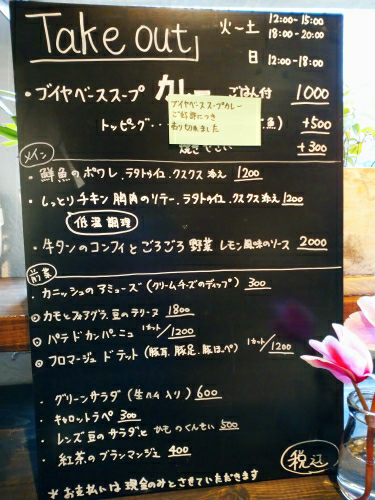 Take out
火〜土 12:00-15:00
18:00-20:00
日 12:00-18:00
・ブイヤベーススープ カレー ごはん付 1000
ブイヤベーススープカレー
ご好評につき
売り切れました
トッピング・・・ 魚) +500
焼きやさい +300
メイン
・鮮魚のポワレ、ラタトゥイユ、クスクス添え 1200
・しっとりチキン 胸肉のソテー、ラタトゥイユ、クスクス添え 1200
低温調理
・牛タンのコンフィとごろごろ野菜 レモン風味のソース 2000
前菜
・カニッシュのアミューズ(クリームチーズのディップ) 300
◎カモとフォアグラ、豆のテリーヌ 1800
◎パテドカンパーニュ 1カット/1200
◎フロマージュ ド テット(豚耳、豚足、豚ほっぺ) 1カット/1200
・グリーンサラダ(生ハム入り) 600
・キャロットラペ 300
・レンズ豆のサラダと かものくんせい 500
・紅茶のブランマンジェ 400
税込
*お支払いは現金のみとさせていただきます